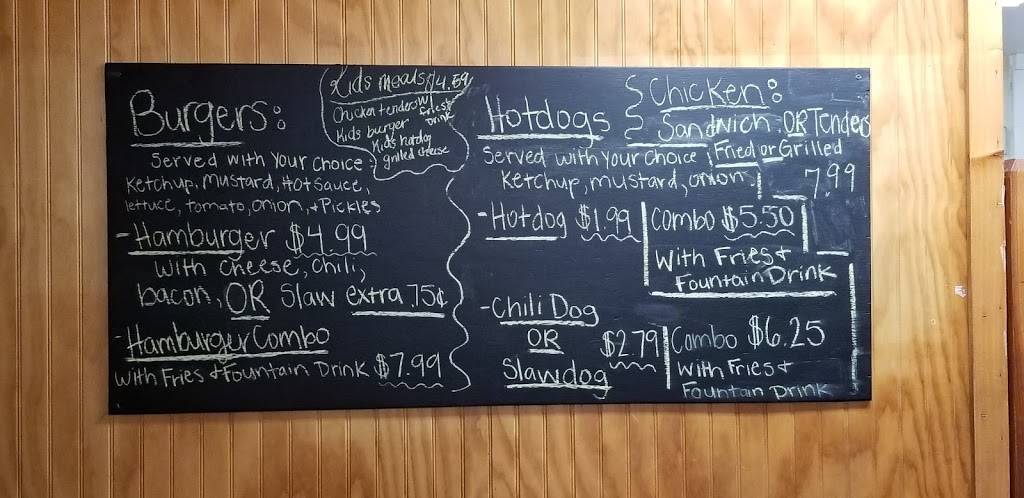 Burgers:
Served with your choice:
Ketchup, Mustard, Hot Sauce,
lettuce, tomato, onion, + Pickles
- Hamburger $4.99
with cheese, chili,
bacon, OR Slaw extra 75¢
- Hamburger Combo
with Fries + Fountain Drink $7.99
Kids meals $4.59
Chicken tenders w/ fries + Drink
Kids burger
Kids hotdog
grilled cheese
Hotdogs
Served with your choice
Ketchup, mustard, onion
- Hotdog $1.99
Combo $5.50
with Fries +
Fountain Drink
- Chili Dog
OR
Slawdog
$2.79
Combo $6.25
with Fries +
Fountain Drink
Chicken:
Sandwich OR Tenders
Fried or Grilled
7.99